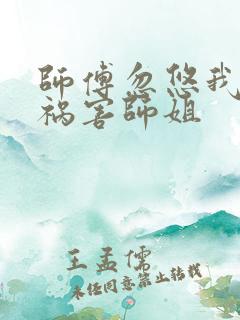 師傅忽悠我
祸害師姐
王孟儒
未经同意禁止转载